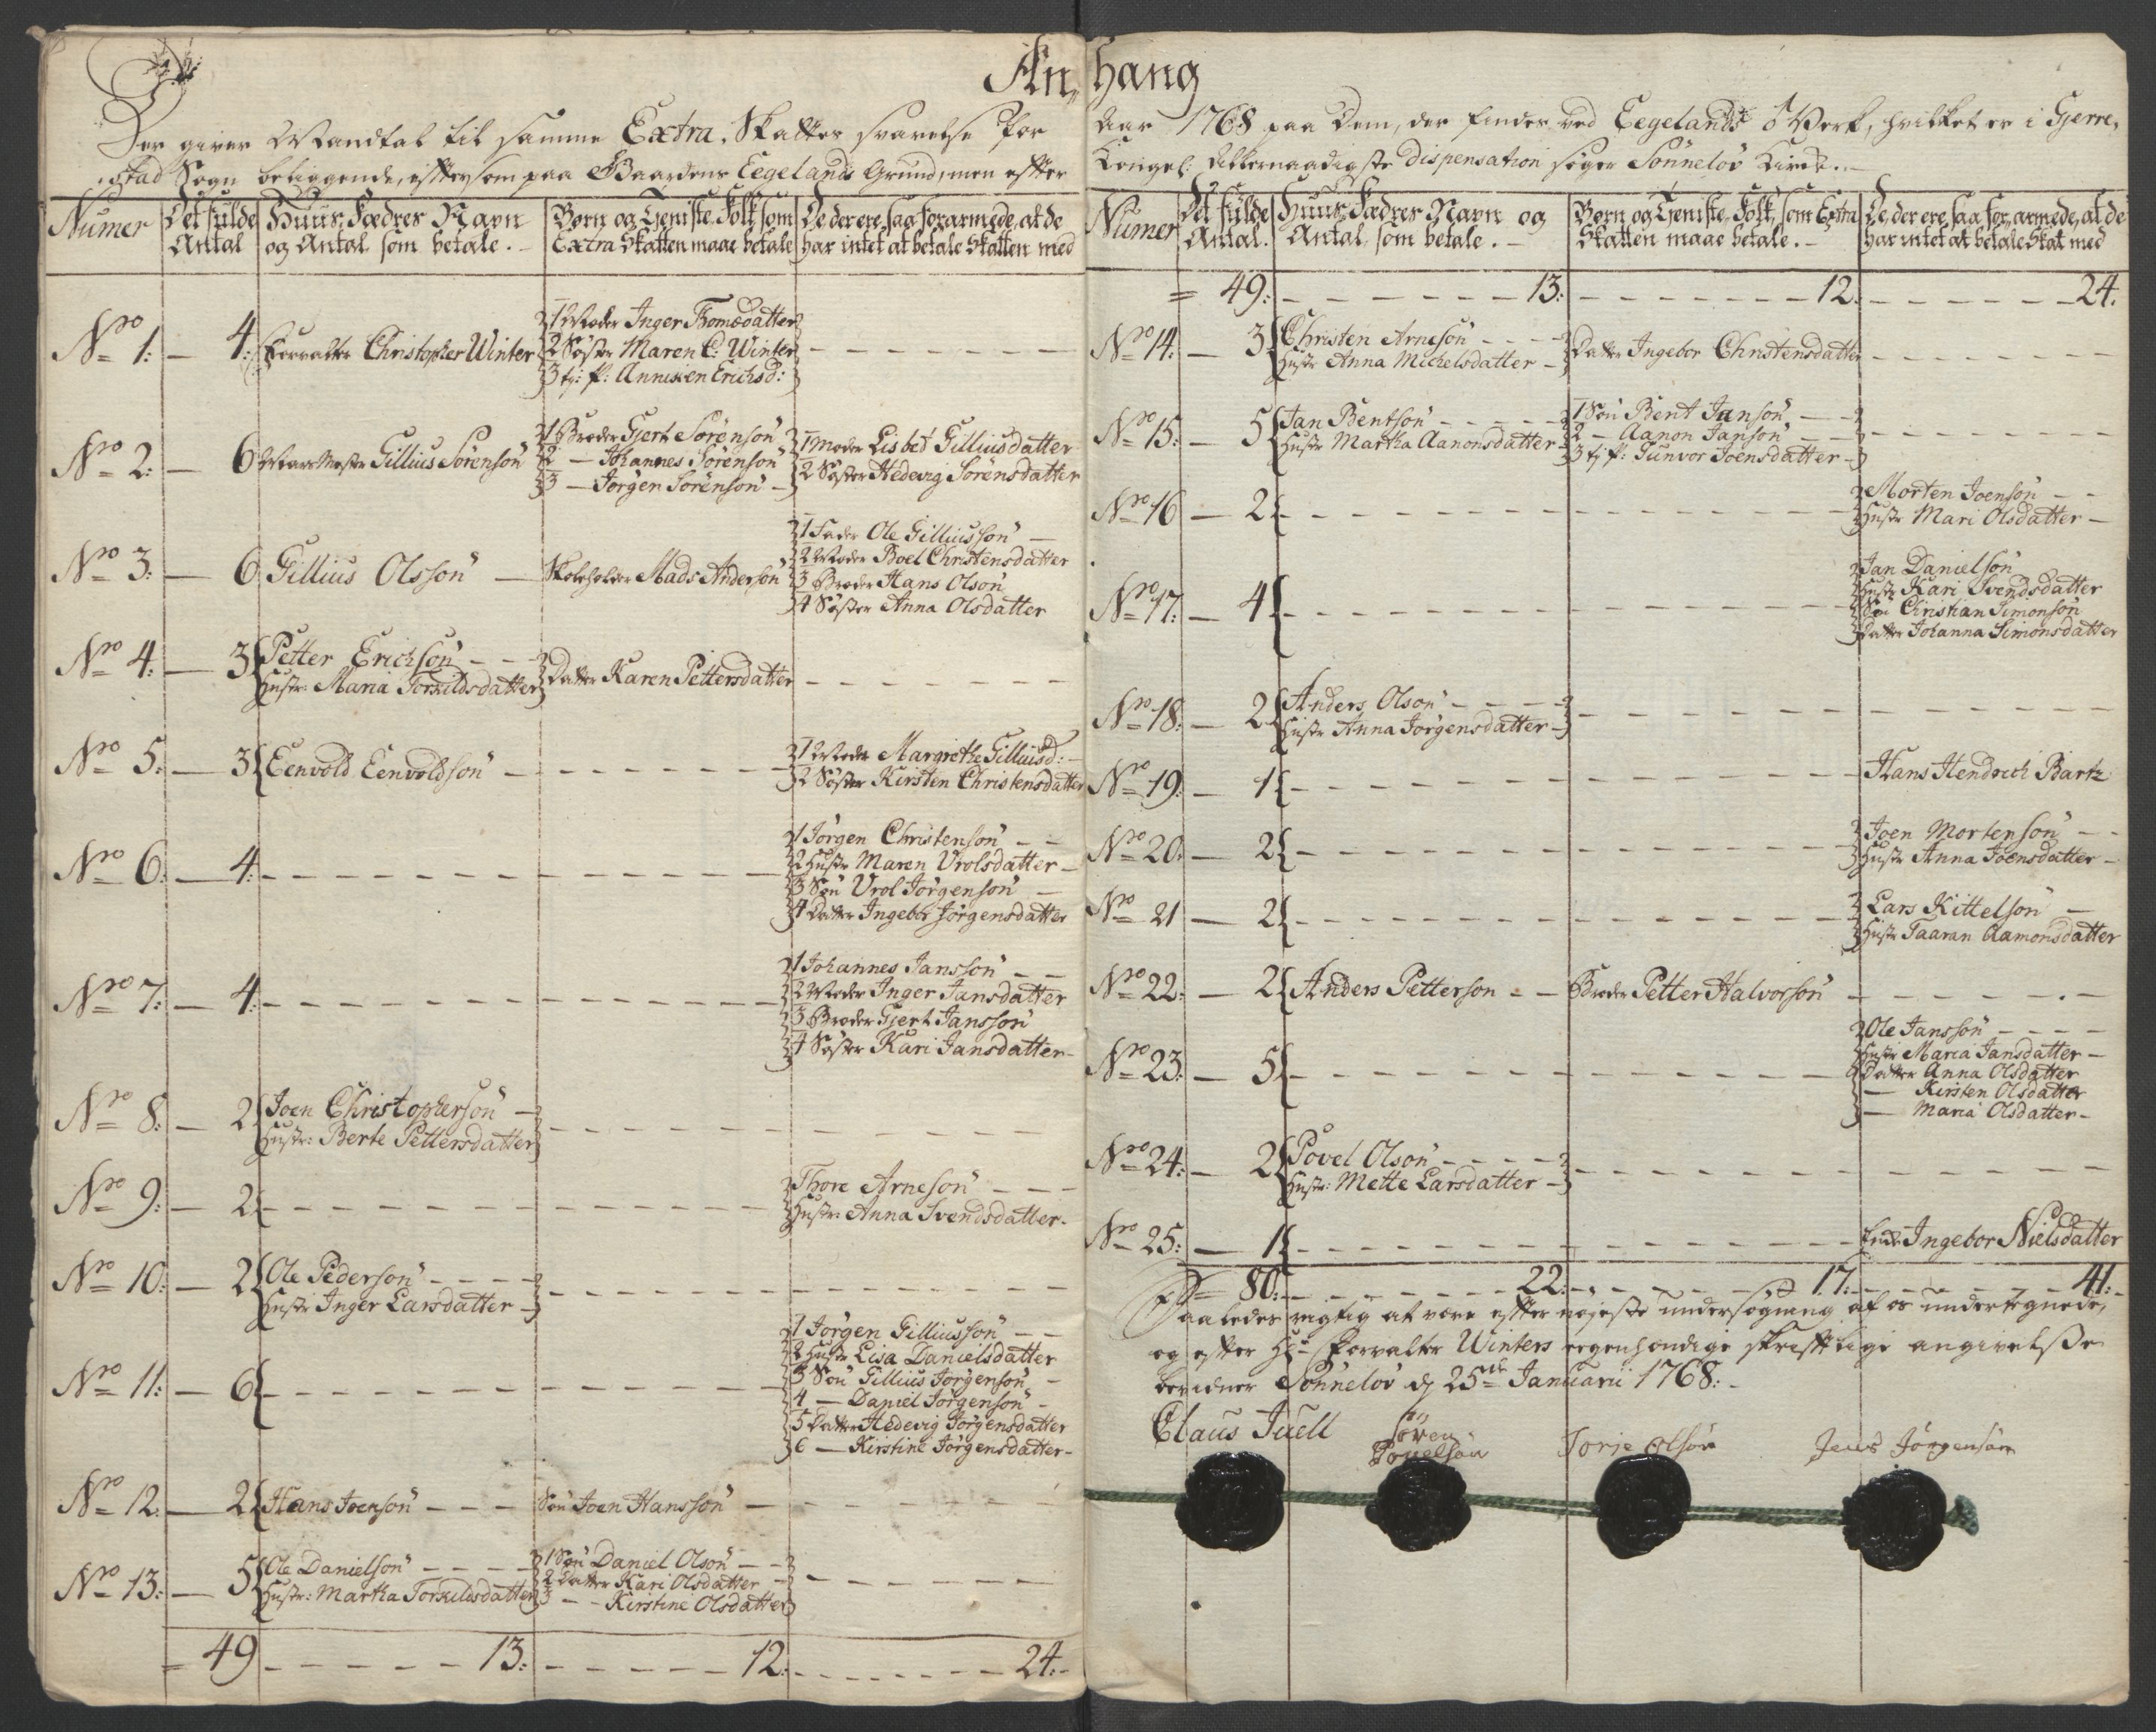 An,, hang
Der giver Mandtal til samme Extra-Skattes svarelse for
Aar 1768 paa Dem, der findes ved Eegelands Verk, hvilket er i Gjerre,,
,,stad Sogn beliggende, efftersom paa Gaardens Eegelands Grund, men effter
Kongel: Allernaadigste Dispensation søger Sønneløv Kirke.
Numer
Det fulde Antal
Huus-Fædres Navn og Antal som betale.
Børn og Tjeniste-Folk, som Extra Skatten maae betale
De der ere saa forarmede, at de har intet at betale Skatten med
No 1: 4: Forvalter Christopher Winter
1 Moder Inger Thomædatter
2 Søster Maren C: Winter
3 tj: p: Annicken Erichsd:
No 2: 6 Gillius Sørenson
1 Broder Gjert Sørenson
2 — Johannes Sørenson
3 — Jørgen Sørenson
1 Moder Lisbet Gilliusdatter
2 Søster Hedevig Sørensdatter
No 3: 6 Gillius Olsson
Skoleholder Mads Anderson
1 Fader Ole Gilliusson
2 Moder Boel Christensdatter
3 Broder Hans Olson
4 Søster Anna Olsdatter
No 4: 3 Petter Erichson
Hustr: Maria Torkildsdatter
Datter Karen Pettersdatter
No 5: 3 Eenvold Eenvoldson
1 Moder Margrethe Gilliusd:
2 Søster Kirsten Christensdatter
No 6: 4:
1 Jørgen Christenson
2 Hustr Maren Vrolsdatter
3 Søn Vrol Jørgenson
4 Datter Ingebor Jørgensdatter
No 7: 4:
1 Johannes Jansson
2 Moder Inger Jansdatter
3 Broder Gjert Jansson
4 Søster Kari Jansdatter
No 8: 2 Joen Christopherson
Hustr: Berte Pettersdatter
No 9: 2
Thore Arneson
Hustr: Anna Svendsdatter
No 10: 2 Ole Pederson
Hustr Inger Larsdatter
No 11: 6
1 Jørgen Gilliusson
2 Hustr Lisa Danielsdatter
3 Søn Gillius Jørgenson
4 — Daniel Jørgenson
5 Datter Hedevig Jørgensdatter
6 — Kirstine Jørgensdatter
No 12: 2 Hans Joenson
Søn Joen Hansson
No 13: 5 Ole Danielson
Hustr: Martha Torkildsdatter
1 Søn Daniel Olson
2 Datter Kari Olsdatter
3 — Kirstine Olsdatter
= 49 13: 12: 24:
Numer
Det fulde Antal.
Huus-Fædres Navn og Antal som betale.
Børn og Tjeniste-Folk, som Extra Skatten maae betale.
De, der ere saa forarmede, at de har intet at betale Skat med
= 49: 13: 12: 24.
No 14: 3 Christen Arneson
Hustr Anna Michelsdatter
Datter Ingebor Christensdatter
No 15: 5 Jan Bentson
Hustr Martha Aanonsdatter
1 Søn Bent Janson
2 — Aanon Janson
3 tj p: Gunvor Joensdatter
No 16 2
Morten Joenson
Hustr Mari Olsdatter
No 17: 4
Jan Danielson
Hustr Kari Svendsdatter
Søn Christian Simonson
Datter Johanna Simonsdatter
No 18: 2 Anders Olson
Hustr Anna Jørgensdatter
No 19: 1
Hans Hendrich Bartz
No 20: 2
Joen Mortenson
Hustr Anna Joensdatter
No 21 2
Lars Kittelson
Hustr Taaran Aamonsdatter
No 22: 2 Anders Petterson
Broder Petter Halvorson
No 23: 5
Ole Jansson
Hustr Maria Jansdatter
Datter Anna Olsdatter
— Kirsten Olsdatter
— Maria Olsdatter
No 24: 2 Povel Olson
Hustr: Mette Larsdatter
No 25: 1
Enke Ingebor Nielsdatter
= 80: 22: 17: 41:
Saaledes rigtig at være effter nøjeste undersøgning af os undertegnede,
og effter Hr Forvalter Winters eegenhændige skrifftlige angivelse
bevidner Sønneløv d 25de Januarii 1768:
Claus Juell
Søren Povelsøn
Torje Olsøn
Jens Jørgensøn